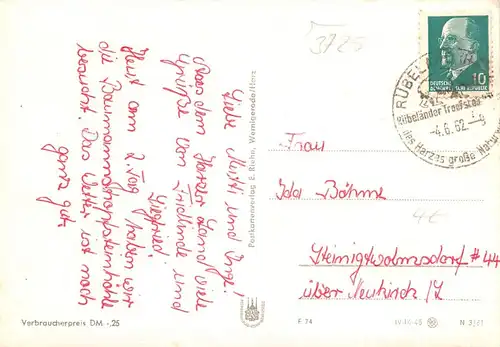 3725
DEUTSCHE
DEMOKRATISCHE REPUBLIK
10
Rübeländer Tropfstein
-4.6.62.-
des Harzes große Natur
Liebe Mutti und Inge!
Aus dem Harzer Land viele
Grüße von Friedlinde und
Siegfried.
Heut am 2. Tag haben wir
die Baumannstropfsteinhöhle
besucht. Das Wetter ist noch
ganz gut.
Postkartenverlag E. Riehn, Wernigerode/Harz
Frau
Ida Böhme
4€
Steinigtwolmsdorf #44
über Neukirch/L
Verbraucherpreis DM -,25
F 74
N 3561